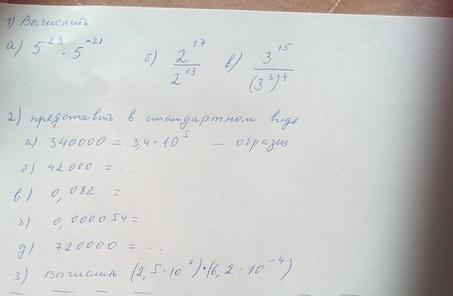 1) Вычислить
а) 5^23 · 5^-21 б) 2^17 / 2^13 в) 3^15 / (3^3)^4
2) представить в стандартном виде
а) 340000 = 3,4 · 10^5 — образец
б) 42000 = ...
в) 0,082 =
г) 0,000054 =
д) 720000 = ...
3) Вычислить (2,5 · 10^7) · (6,2 · 10^-4)